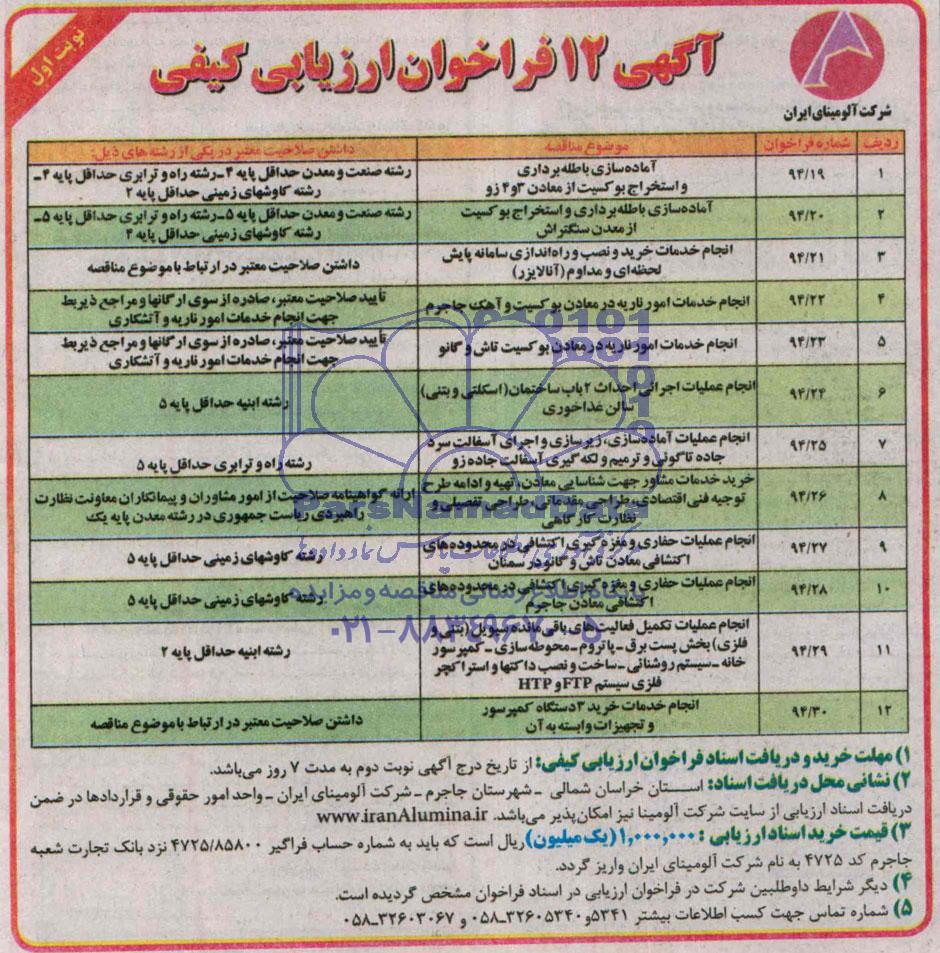 نوبت اول
آگهی ۱۲ فراخوان ارزیابی کیفی
شرکت آلومینای ایران
ردیف شماره فراخوان موضوع مناقصه داشتن صلاحیت معتبر در یکی از رشته های ذیل:
۱ ۹۴/۱۹ آماده‌سازی باطله‌برداری رشته صنعت و معدن حداقل پایه ۴ـ رشته راه و ترابری حداقل پایه ۴ـ
و استخراج بوکسیت از معادن ۳و۴ زو رشته کاوشهای زمینی حداقل پایه ۲
۲ ۹۴/۲۰ آماده‌سازی باطله‌برداری و استخراج بوکسیت رشته صنعت و معدن حداقل پایه ۵ـ رشته راه و ترابری حداقل پایه ۵ـ
از معدن سنگتراش رشته کاوشهای زمینی حداقل پایه ۴
۳ ۹۴/۲۱ انجام خدمات خرید و نصب و راه‌اندازی سامانه پایش
لحظه‌ای و مداوم (آنالایزر) داشتن صلاحیت معتبر در ارتباط با موضوع مناقصه
۴ ۹۴/۲۲ انجام خدمات امور ناریه در معادن بوکسیت و آهک جاجرم تأیید صلاحیت معتبر، صادره از سوی ارگانها و مراجع ذیربط
جهت انجام خدمات امور ناریه و آتشکاری
۵ ۹۴/۲۳ انجام خدمات امور ناریه در معادن بوکسیت تاش و گانو تأیید صلاحیت معتبر، صادره از سوی ارگانها و مراجع ذیربط
جهت انجام خدمات امور ناریه و آتشکاری
۶ ۹۴/۲۴ انجام عملیات اجرائی احداث ۲ باب ساختمان (اسکلتی و بتنی) رشته ابنیه حداقل پایه ۵
سالن غذاخوری
۷ ۹۴/۲۵ انجام عملیات آماده‌سازی، زیرسازی و اجرای آسفالت سرد
جاده تاگونی و ترمیم و لکه گیری آسفالت جاده زو رشته راه و ترابری حداقل پایه ۵
۸ ۹۴/۲۶ خرید خدمات مشاور جهت شناسایی معادن، تهیه و ادامه طرح
توجیه فنی اقتصادی، طراحی مقدماتی، طراحی تفصیلی و ارائه گواهینامه صلاحیت از امور مشاوران و پیمانکاران معاونت نظارت
نظارت کارگاهی راهبردی ریاست جمهوری در رشته معدن پایه یک
۹ ۹۴/۲۷ انجام عملیات حفاری و مغزه گیری اکتشافی در محدوده‌های
اکتشافی معادن تاش و گانو در سمنان رشته کاوشهای زمینی حداقل پایه ۵
۱۰ ۹۴/۲۸ انجام عملیات حفاری و مغزه گیری اکتشافی در محدوده‌های
اکتشافی معادن جاجرم رشته کاوشهای زمینی حداقل پایه ۵
۱۱ ۹۴/۲۹ انجام عملیات تکمیل فعالیت‌های باقی‌مانده سیویل (بتنی و
فلزی) بخش پست برق ـ پاتروم ـ محوطه‌سازی ـ کمپرسور رشته ابنیه حداقل پایه ۲
خانه ـ سیستم روشنائی ـ ساخت و نصب داکتها و استراکچر
فلزی سیستم FTP و HTP
۱۲ ۹۴/۳۰ انجام خدمات خرید ۳ دستگاه کمپرسور
و تجهیزات وابسته به آن داشتن صلاحیت معتبر در ارتباط با موضوع مناقصه
۱) مهلت خرید و دریافت اسناد فراخوان ارزیابی کیفی: از تاریخ درج آگهی نوبت دوم به مدت ۷ روز می‌باشد.
۲) نشانی محل دریافت اسناد: استان خراسان شمالی ـ شهرستان جاجرم ـ شرکت آلومینای ایران ـ واحد امور حقوقی و قراردادها در ضمن
دریافت اسناد ارزیابی از سایت شرکت آلومینا نیز امکان‌پذیر می‌باشد. www.iranAlumina.ir
۳) قیمت خرید اسناد ارزیابی : ۱,۰۰۰,۰۰۰ (یک میلیون) ریال است که باید به شماره حساب فراگیر ۴۷۲۵/۸۵۸۰۰ نزد بانک تجارت شعبه
جاجرم کد ۴۷۲۵ به نام شرکت آلومینای ایران واریز گردد.
۴) دیگر شرایط داوطلبین شرکت در فراخوان ارزیابی در اسناد فراخوان مشخص گردیده است.
۵) شماره تماس جهت کسب اطلاعات بیشتر ۵۳۴۱و۳۲۶۰۵۳۴۰ـ۰۵۸ و ۳۲۶۰۳۰۶۷ـ۰۵۸
ParsNamadData
پایگاه اطلاع رسانی مناقصه و مزایده